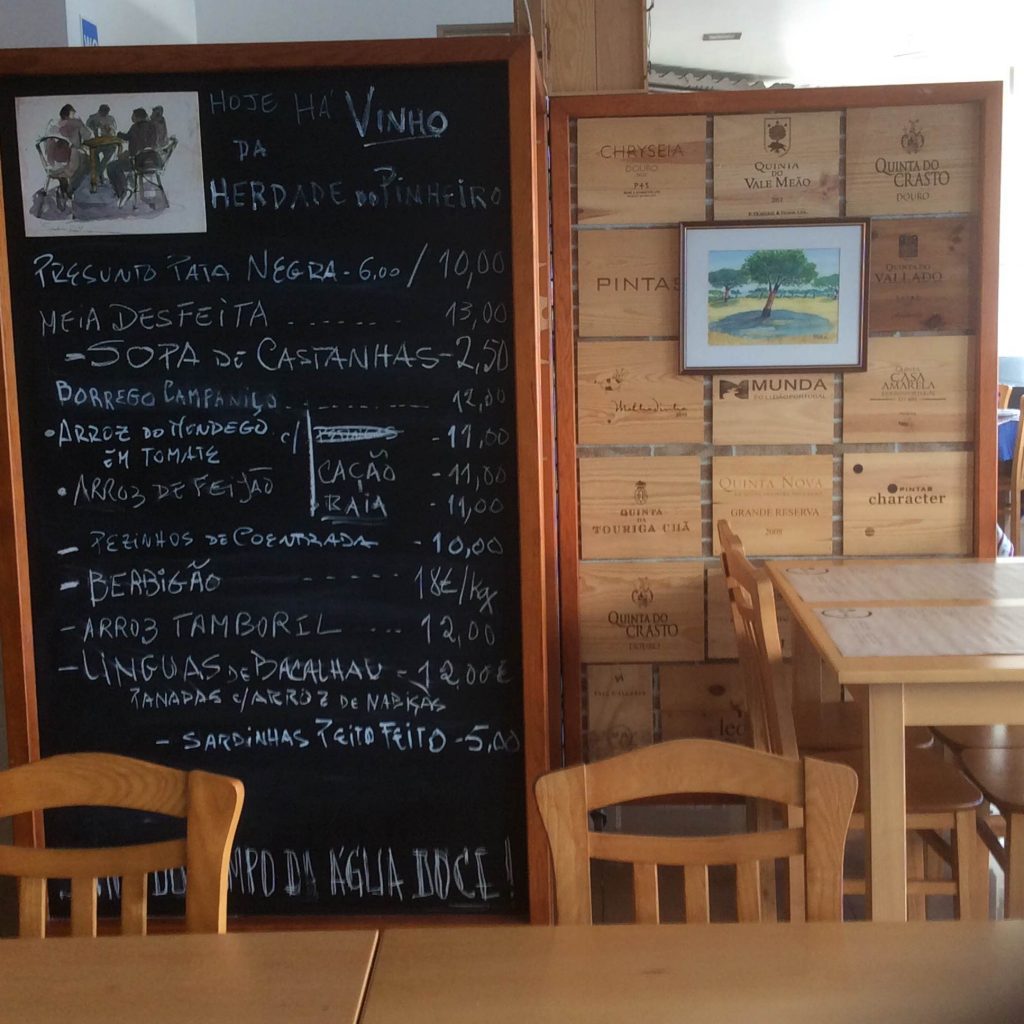 HOJE HÁ VINHO
DA
HERDADE DO PINHEIRO
PRESUNTO PATA NEGRA - 6,00 / 10,00
MEIA DESFEITA ........ 13,00
- SOPA DE CASTANHAS - 2,50
BORREGO CAMPANIÇO ........ 12,00
• ARROZ DO MONDEGO c/ - 11,00
EM TOMATE CAÇÃO - 11,00
• ARROZ DE FEIJÃO RAIA - 11,00
- PEZINHOS DE COENTRADA - 10,00
- BERBIGÃO ------ 18€/kg
- ARROZ TAMBORIL ... 12,00
- LÍNGUAS DE BACALHAU - 12,00€
PANADAS C/ARROZ DE NABIÇAS
- SARDINHAS PEITO FEITO - 5,00
DA ÁGUA DOCE!
CHRYSEIA
DOURO
P+S
QUINTA
DO
VALE MEÃO
QUINTA DO
CRASTO
DOURO
PINTAS
QUINTA DO
VALLADO
MUNDA
CASA
AMARELA
QUINTA
DA
TOURIGA CHÃ
QUINTA NOVA
GRANDE RESERVA
2009
PINTAS
character
QUINTA DO
CRASTO
DOURO